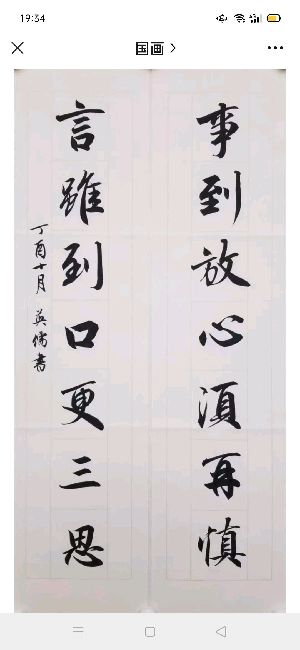 19:34
国画
事到放心须再慎
言虽到口更三思
丁酉十月 英儒书